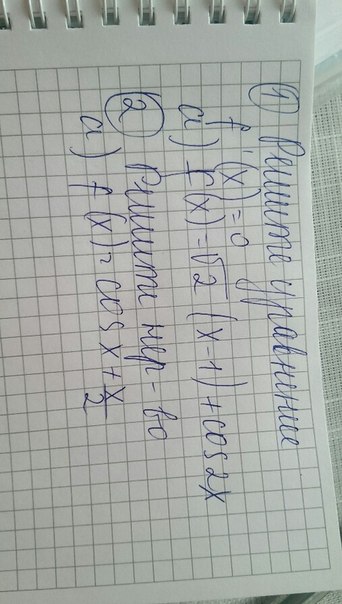 ① Решите уравнение
f'(x)=0
а) f(x)=√2 (x-1)+cos2x
② Решите нер-во
а) f(x)= cos x + x/2